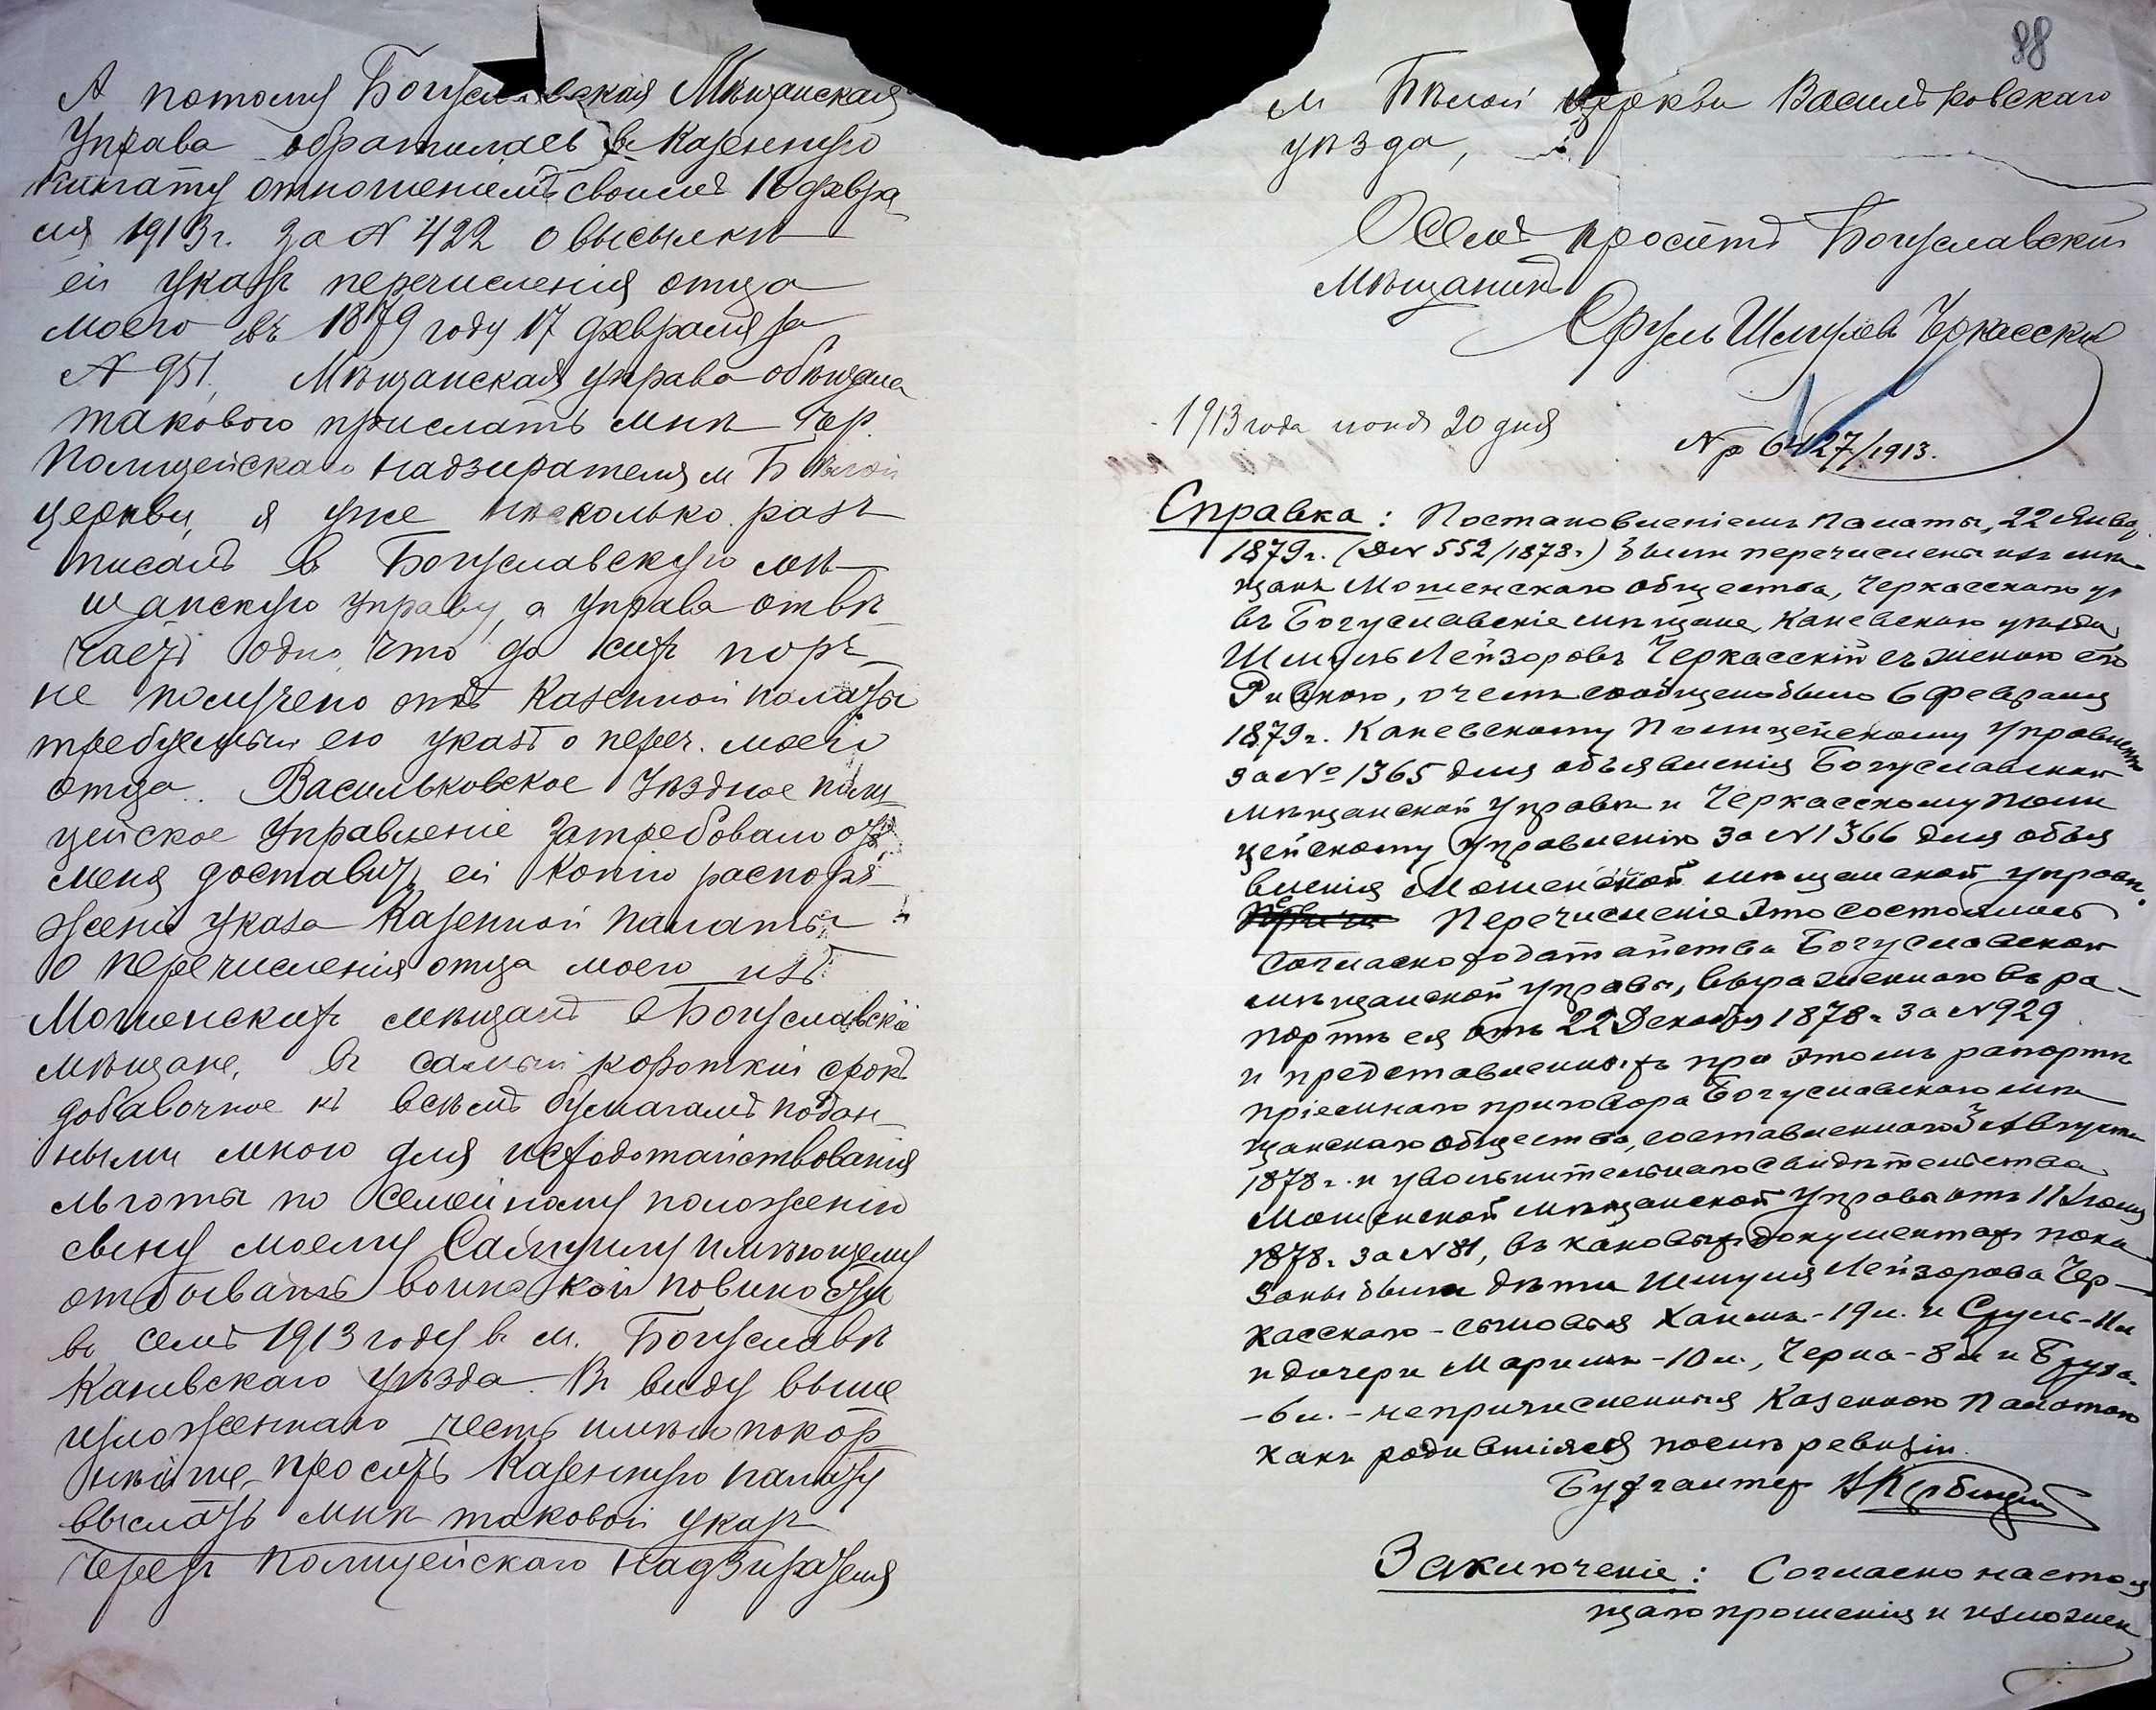 А потому Богуславская Мѣщанская
Управа обратилась в Казенную
Палату отношеніемъ своимъ 18 февра
ля 1913 г. за N 422 о высылкѣ
ей указъ перечисленія отца
моего въ 1879 году 17 февраля за
N 951, Мѣщанская управа обѣщала
такового прислать мнѣ чер.
Полицейскаго надзирателя м Бѣлой
церкви, я уже нѣсколько разъ
писалъ в Богуславскую мѣ
щанскую управу, а управа отвѣ
чаетъ одно что до сихъ поръ
не получено отъ Казенной палаты
требуемый ею указъ о переч. моего
отца.. Васильковское Уѣздное поли
цейское Управленіе затребовало отъ
меня доставить ей Копію распоря
женія указа Казенной Палаты
о перечисленія отца моего изъ
Мошенскихъ мѣщанъ в Богуславскіе
мѣщане, въ самый короткій срокъ
добавочное къ всѣмъ бумагамъ подан
ными мною для исходотайствованія
льготы по семейному положенію
сыну моему Самуилу имѣющему
отбывать воинской повинности
въ семъ 1913 году в м. Богуславѣ
Каневскаго уѣзда. Въ виду выше
изложеннаго честь имѣю покор
нѣйше просить Казенную палату
выслать мнѣ таковой указъ
Черезъ Полицейскаго Надзирателя
88
м Бѣлой церкви Васильковскаго
уѣзда,
О семъ проситъ Богуславскій
Мѣщанинъ
Сруль Шмулевъ Черкасскій
1913 года июня 20 дня
N р 6427/1913.
Справка: Постановленіемъ Палаты, 22 Январ.
1879 г. (Д N 552/1878 г.) были перечислены изъ мѣ
щанъ Мошенскаго общества, Черкасскаго у.
въ Богуславскіе мѣщане, Каневскаго уѣзда,
Шмуль Лейзоровъ Черкасскій съ женою его
Ривкою, о чемъ сообщено было 6 Февраля
1879 г. Каневскому Полицейскому Управленію
за № 1365 для объявленія Богуславской
мѣщанской Управѣ и Черкасскому Поли
цейскому Управленію за N 1366 для объя
вленія Мошенской мѣщанской управѣ.
Перечисленіе это состоялось
согласно ходатайства Богуславской
мѣщанской управы, выраженнаго въ ра-
портѣ ея отъ 22 Декабря 1878 г. за N 929
и представленныхъ при этомъ рапортѣ
пріемнаго приговора Богуславскаго мѣ
щанскаго общества, составленнаго 3 Августа
1878 г. и увольнительнаго свидѣтельства
Мошенской мѣщанской Управы отъ 11 Іюля
1878 г. за N 81, въ каковыхъ документахъ пока
заны были дѣти Шмуля Лейзорова Чер-
касскаго - сыновья Хаимъ - 19 л. и Сруль - 11 л
и дочери Марьямъ - 10 л., Черна - 8 л и Бруха-
- 6 л. - непричисленныя Казенною Палатою
какъ родившіяся послѣ ревизіи.
Бухгалтер
Заключеніе: Согласно настоя
щаго прошенія и изложен